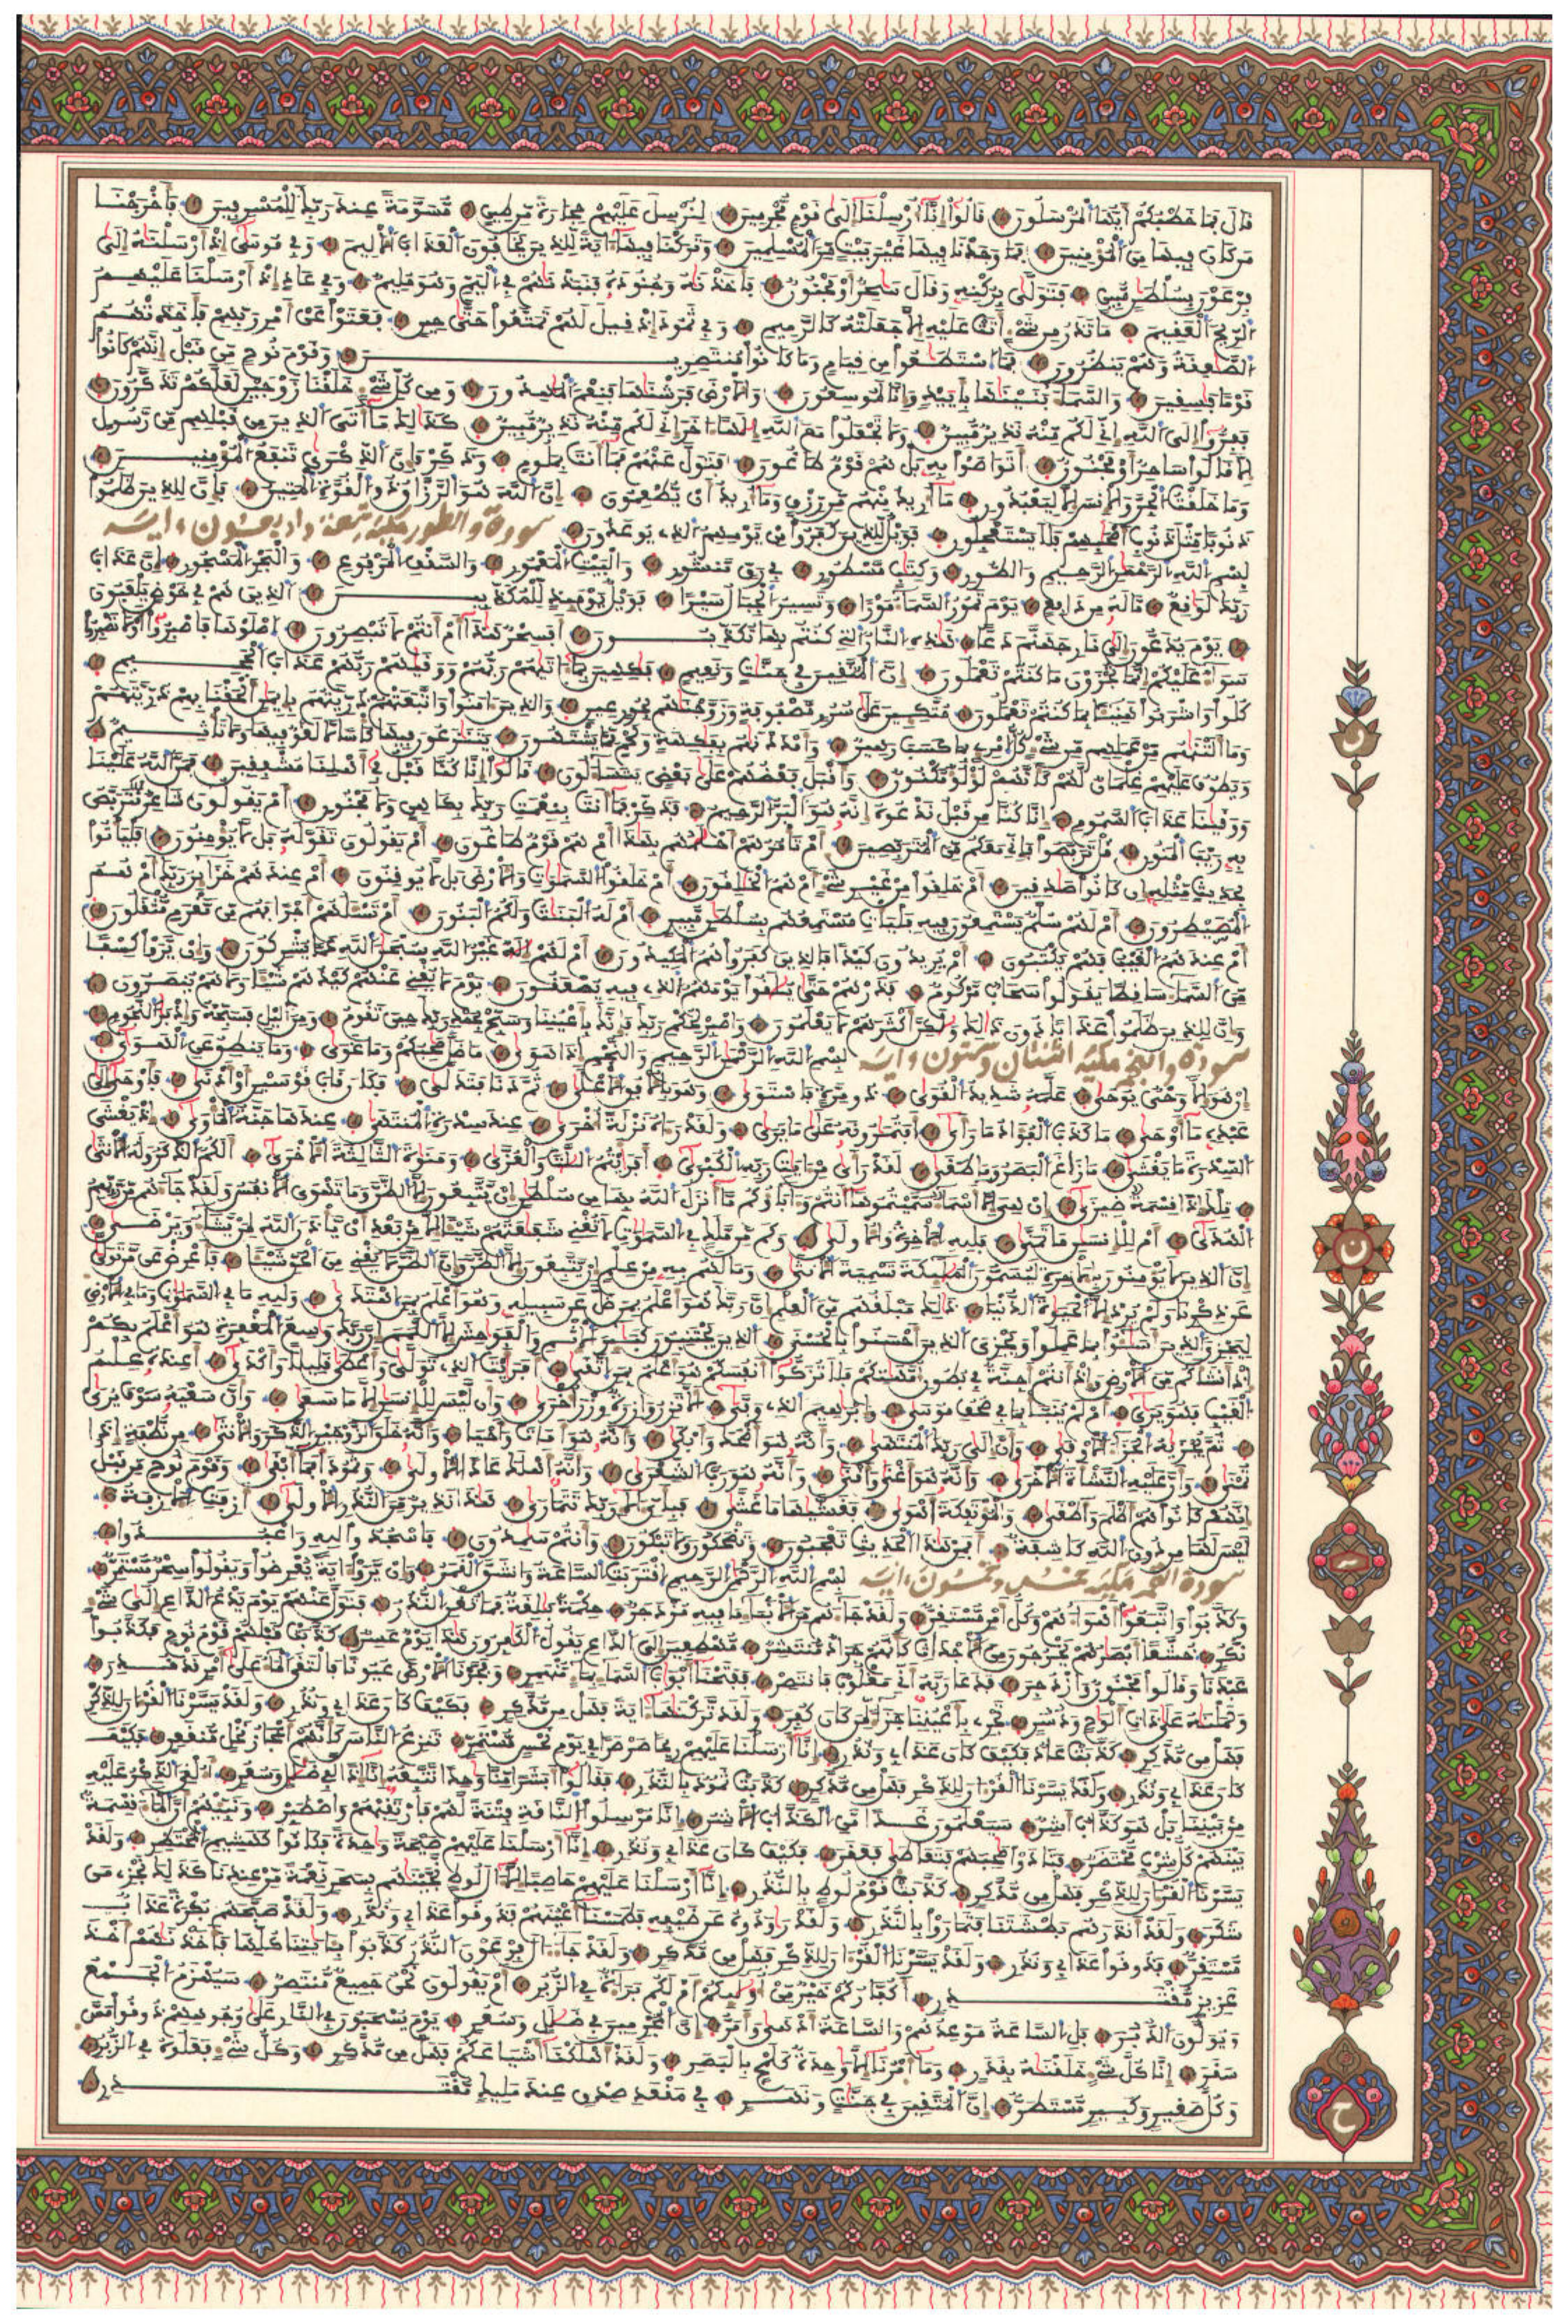 قال فما خطبكم أيها المرسلون قالوا إنا أرسلنا إلى قوم مجرمين لنرسل عليهم حجارة من طين مسومة عند ربك للمسرفين فأخرجنا
من كان فيها من المؤمنين فما وجدنا فيها غير بيت من المسلمين وتركنا فيها ءاية للذين يخافون العذاب الأليم وفي موسى إذ أرسلناه إلى
فرعون بسلطان مبين فتولى بركنه وقال ساحر أو مجنون فأخذناه وجنوده فنبذناهم في اليم وهو مليم وفي عاد إذ أرسلنا عليهم
الريح العقيم ما تذر من شيء أتت عليه إلا جعلته كالرميم وفي ثمود إذ قيل لهم تمتعوا حتى حين فعتوا عن أمر ربهم فأخذتهم
الصاعقة وهم ينظرون فما استطاعوا من قيام وما كانوا منتصرين وقوم نوح من قبل إنهم كانوا
قوما فاسقين والسماء بنيناها بأييد وإنا لموسعون والأرض فرشناها فنعم الماهدون ومن كل شيء خلقنا زوجين لعلكم تذكرون
ففروا إلى الله إني لكم منه نذير مبين ولا تجعلوا مع الله إلها ءاخر إني لكم منه نذير مبين كذلك ما أتى الذين من قبلهم من رسول
إلا قالوا ساحر أو مجنون أتواصوا به بل هم قوم طاغون فتول عنهم فما أنت بملوم وذكر فإن الذكرى تنفع المؤمنين
وما خلقت الجن والإنس إلا ليعبدون ما أريد منهم من رزق وما أريد أن يطعمون إن الله هو الرزاق ذو القوة المتين فإن للذين ظلموا
ذنوبا مثل ذنوب أصحابهم فلا يستعجلون فويل للذين كفروا من يومهم الذي يوعدون سورة والطور مكية تسعة واربعون ءاية
بسم الله الرحمن الرحيم والطور وكتاب مسطور في رق منشور والبيت المعمور والسقف المرفوع والبحر المسجور إن عذاب
ربك لواقع ما له من دافع يوم تمور السماء مورا وتسير الجبال سيرا فويل يومئذ للمكذبين الذين هم في خوض يلعبون
يوم يدعون إلى نار جهنم دعا هذه النار التي كنتم بها تكذبون أفسحر هذا أم أنتم لا تبصرون اصلوها فاصبروا أو لا تصبروا
سواء عليكم إنما تجزون ما كنتم تعملون إن المتقين في جنات ونعيم فاكهين بما ءاتاهم ربهم ووقاهم ربهم عذاب الجحيم
كلوا واشربوا هنيئا بما كنتم تعملون متكئين على سرر مصفوفة وزوجناهم بحور عين والذين ءامنوا واتبعتهم ذريتهم بإيمان ألحقنا بهم ذرياتهم
وما ألتناهم من عملهم من شيء كل امرئ بما كسب رهين وأمددناهم بفاكهة ولحم مما يشتهون يتنازعون فيها كأسا لا لغو فيها ولا تأثيم
ويطوف عليهم غلمان لهم كأنهم لؤلؤ مكنون وأقبل بعضهم على بعض يتساءلون قالوا إنا كنا قبل في أهلنا مشفقين فمن الله علينا
ووقانا عذاب السموم إنا كنا من قبل ندعوه أنه هو البر الرحيم فذكر فما أنت بنعمت ربك بكاهن ولا مجنون أم يقولون شاعر نتربص
به ريب المنون قل تربصوا فإني معكم من المتربصين أم تأمرهم أحلامهم بهذا أم هم قوم طاغون أم يقولون تقوله بل لا يؤمنون فليأتوا
بحديث مثله إن كانوا صادقين أم خلقوا من غير شيء أم هم الخالقون أم خلقوا السماوات والأرض بل لا يوقنون أم عندهم خزائن ربك أم هم
المصيطرون أم لهم سلم يستمعون فيه فليأت مستمعهم بسلطان مبين أم له البنات ولكم البنون أم تسألهم أجرا فهم من مغرم مثقلون
أم عندهم الغيب فهم يكتبون أم يريدون كيدا فالذين كفروا هم المكيدون أم لهم إله غير الله سبحان الله عما يشركون وإن يروا كسفا
من السماء ساقطا يقولوا سحاب مركوم فذرهم حتى يلاقوا يومهم الذي فيه يصعقون يوم لا يغني عنهم كيدهم شيئا ولا هم ينصرون
وإن للذين ظلموا عذابا دون ذلك ولكن أكثرهم لا يعلمون واصبر لحكم ربك فإنك بأعيننا وسبح بحمد ربك حين تقوم ومن الليل فسبحه وإدبار النجوم
سورة والنجم مكية اثنتان وستون ءاية بسم الله الرحمن الرحيم والنجم إذا هوى ما ضل صاحبكم وما غوى وما ينطق عن الهوى
إن هو إلا وحي يوحى علمه شديد القوى ذو مرة فاستوى وهو بالأفق الأعلى ثم دنا فتدلى فكان قاب قوسين أو أدنى فأوحى إلى
عبده ما أوحى ما كذب الفؤاد ما رأى أفتمارونه على ما يرى ولقد رءاه نزلة أخرى عند سدرة المنتهى عندها جنة المأوى إذ يغشى
السدرة ما يغشى ما زاغ البصر وما طغى لقد رأى من ءايات ربه الكبرى أفرأيتم اللات والعزى ومناة الثالثة الأخرى ألكم الذكر وله الأنثى
تلك إذا قسمة ضيزى إن هي إلا أسماء سميتموها أنتم وءاباؤكم ما أنزل الله بها من سلطان إن يتبعون إلا الظن وما تهوى الأنفس ولقد جاءهم من ربهم
الهدى أم للإنسان ما تمنى فلله الآخرة والأولى وكم من ملك في السماوات لا تغني شفاعتهم شيئا إلا من بعد أن يأذن الله لمن يشاء ويرضى
إن الذين لا يؤمنون بالآخرة ليسمون الملائكة تسمية الأنثى وما لهم به من علم إن يتبعون إلا الظن وإن الظن لا يغني من الحق شيئا فأعرض عن من تولى
عن ذكرنا ولم يرد إلا الحياة الدنيا ذلك مبلغهم من العلم إن ربك هو أعلم بمن ضل عن سبيله وهو أعلم بمن اهتدى ولله ما في السماوات وما في الأرض
ليجزي الذين أساءوا بما عملوا ويجزي الذين أحسنوا بالحسنى الذين يجتنبون كبائر الإثم والفواحش إلا اللمم إن ربك واسع المغفرة هو أعلم بكم
إذ أنشأكم من الأرض وإذ أنتم أجنة في بطون أمهاتكم فلا تزكوا أنفسكم هو أعلم بمن اتقى أفرأيت الذي تولى وأعطى قليلا وأكدى أعنده علم
الغيب فهو يرى أم لم ينبأ بما في صحف موسى وإبراهيم الذي وفى ألا تزر وازرة وزر أخرى وأن ليس للإنسان إلا ما سعى وأن سعيه سوف يرى
ثم يجزاه الجزاء الأوفى وأن إلى ربك المنتهى وأنه هو أضحك وأبكى وأنه هو أمات وأحيا وأنه خلق الزوجين الذكر والأنثى من نطفة إذا
تمنى وأن عليه النشأة الأخرى وأنه هو أغنى وأقنى وأنه هو رب الشعرى وأنه أهلك عادا الأولى وثمودا فما أبقى وقوم نوح من قبل
إنهم كانوا هم أظلم وأطغى والمؤتفكة أهوى فغشاها ما غشى فبأي ءالاء ربك تتمارى هذا نذير من النذر الأولى أزفت الآزفة
ليس لها من دون الله كاشفة أفمن هذا الحديث تعجبون وتضحكون ولا تبكون وأنتم سامدون فاسجدوا لله واعبدوا
سورة القمر مكية خمس وخمسون ءاية بسم الله الرحمن الرحيم اقتربت الساعة وانشق القمر وإن يروا ءاية يعرضوا ويقولوا سحر مستمر
وكذبوا واتبعوا أهواءهم وكل أمر مستقر ولقد جاءهم من الأنباء ما فيه مزدجر حكمة بالغة فما تغن النذر فتول عنهم يوم يدع الداع إلى شيء
نكر خشعا أبصارهم يخرجون من الأجداث كأنهم جراد منتشر مهطعين إلى الداع يقول الكافرون هذا يوم عسر كذبت قبلهم قوم نوح فكذبوا
عبدنا وقالوا مجنون وازدجر فدعا ربه أني مغلوب فانتصر ففتحنا أبواب السماء بماء منهمر وفجرنا الأرض عيونا فالتقى الماء على أمر قد قدر
وحملناه على ذات ألواح ودسر تجري بأعيننا جزاء لمن كان كفر ولقد تركناها ءاية فهل من مدكر فكيف كان عذابي ونذر ولقد يسرنا القرءان للذكر
فهل من مدكر كذبت عاد فكيف كان عذابي ونذر إنا أرسلنا عليهم ريحا صرصرا في يوم نحس مستمر تنزع الناس كأنهم أعجاز نخل منقعر فكيف
كان عذابي ونذر ولقد يسرنا القرءان للذكر فهل من مدكر كذبت ثمود بالنذر فقالوا أبشرا منا واحدا نتبعه إنا إذا لفي ضلال وسعر أءلقي الذكر عليه
من بيننا بل هو كذاب أشر سيعلمون غدا من الكذاب الأشر إنا مرسلوا الناقة فتنة لهم فارتقبهم واصطبر ونبئهم أن الماء قسمة
بينهم كل شرب محتضر فنادوا صاحبهم فتعاطى فعقر فكيف كان عذابي ونذر إنا أرسلنا عليهم صيحة واحدة فكانوا كهشيم المحتظر ولقد
يسرنا القرءان للذكر فهل من مدكر كذبت قوم لوط بالنذر إنا أرسلنا عليهم حاصبا إلا ءال لوط نجيناهم بسحر نعمة من عندنا كذلك نجزي من
شكر ولقد أنذرهم بطشتنا فتماروا بالنذر ولقد راودوه عن ضيفه فطمسنا أعينهم فذوقوا عذابي ونذر ولقد صبحهم بكرة عذاب
مستقر فذوقوا عذابي ونذر ولقد يسرنا القرءان للذكر فهل من مدكر ولقد جاء ءال فرعون النذر كذبوا بآياتنا كلها فأخذناهم أخذ
عزيز مقتدر أكفاركم خير من أولئكم أم لكم براءة في الزبر أم يقولون نحن جميع منتصر سيهزم الجمع
ويولون الدبر بل الساعة موعدهم والساعة أدهى وأمر إن المجرمين في ضلال وسعر يوم يسحبون في النار على وجوههم ذوقوا مس
سقر إنا كل شيء خلقناه بقدر وما أمرنا إلا واحدة كلمح بالبصر ولقد أهلكنا أشياعكم فهل من مدكر وكل شيء فعلوه في الزبر
وكل صغير وكبير مستطر إن المتقين في جنات ونهر في مقعد صدق عند مليك مقتدر
ن
ن
ح